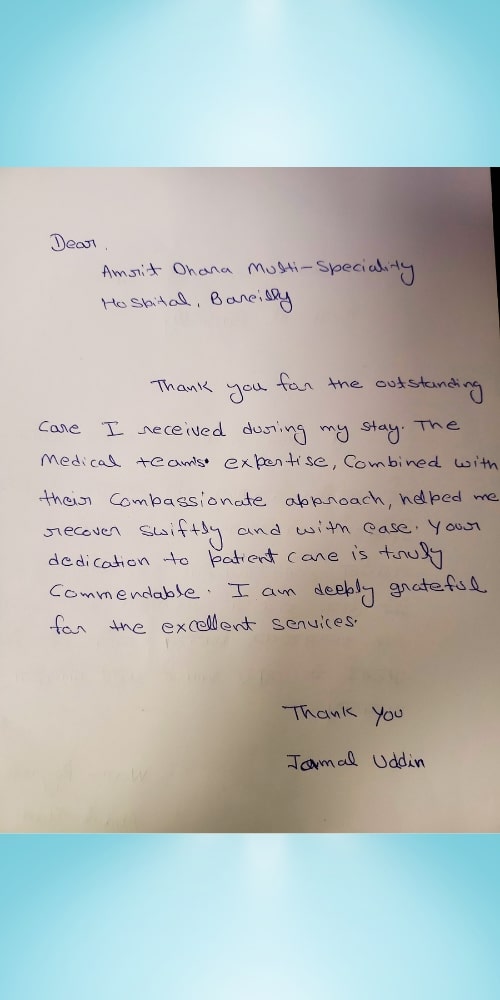 Dear,
Amrit Dhara Multi-Speciality
Hospital, Bareilly
Thank you for the outstanding
care I received during my stay. The
Medical team's expertise, Combined with
their Compassionate approach, helped me
recover swiftly and with ease. Your
dedication to patient care is truly
Commendable. I am deeply grateful
for the excellent services.
Thank You
Jamal Uddin